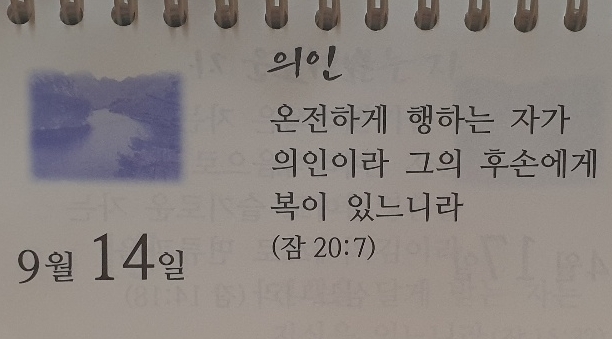 의인
온전하게 행하는 자가
의인이라 그의 후손에게
복이 있느니라
(잠 20:7)
9월 14일